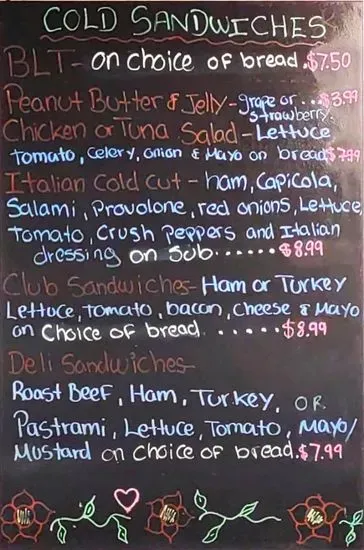 COLD SANDWICHES
BLT - on choice of bread .$7.50
Peanut Butter & Jelly - grape or ... $3.99
strawberry
Chicken or Tuna Salad - Lettuce
Tomato, Celery, Onion & Mayo on bread $7.99
Italian Cold Cut - ham, Capicola,
Salami, Provolone, red onions, Lettuce,
Tomato, Crush Peppers and Italian
dressing on Sub ...... $8.99
Club Sandwiches - Ham or Turkey
Lettuce, tomato, bacon, Cheese & Mayo
on Choice of bread ...... $8.99
Deli Sandwiches -
Roast Beef, Ham, Turkey, OR
Pastrami, Lettuce, Tomato, Mayo/
Mustard on choice of bread .$7.99